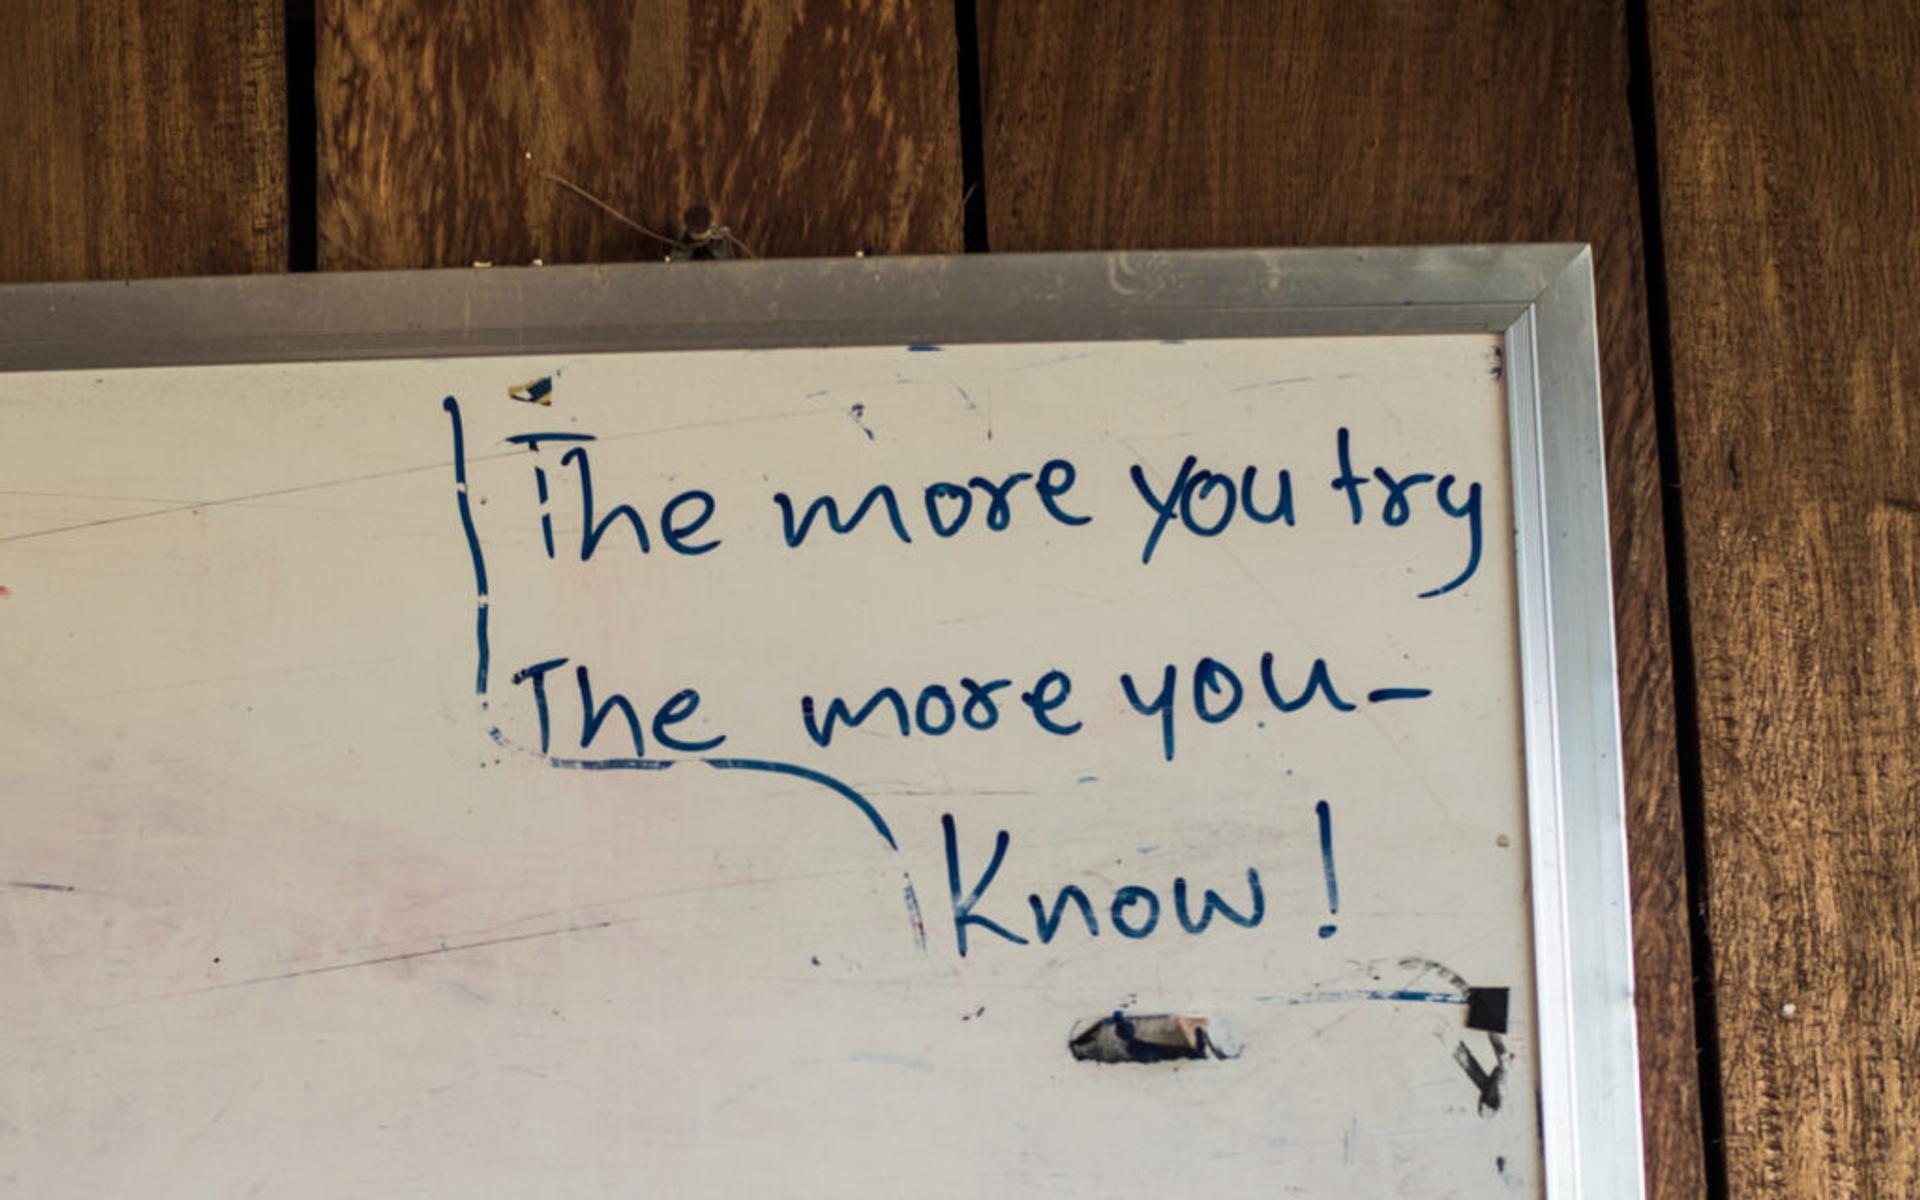 The more you try
The more you-
Know!